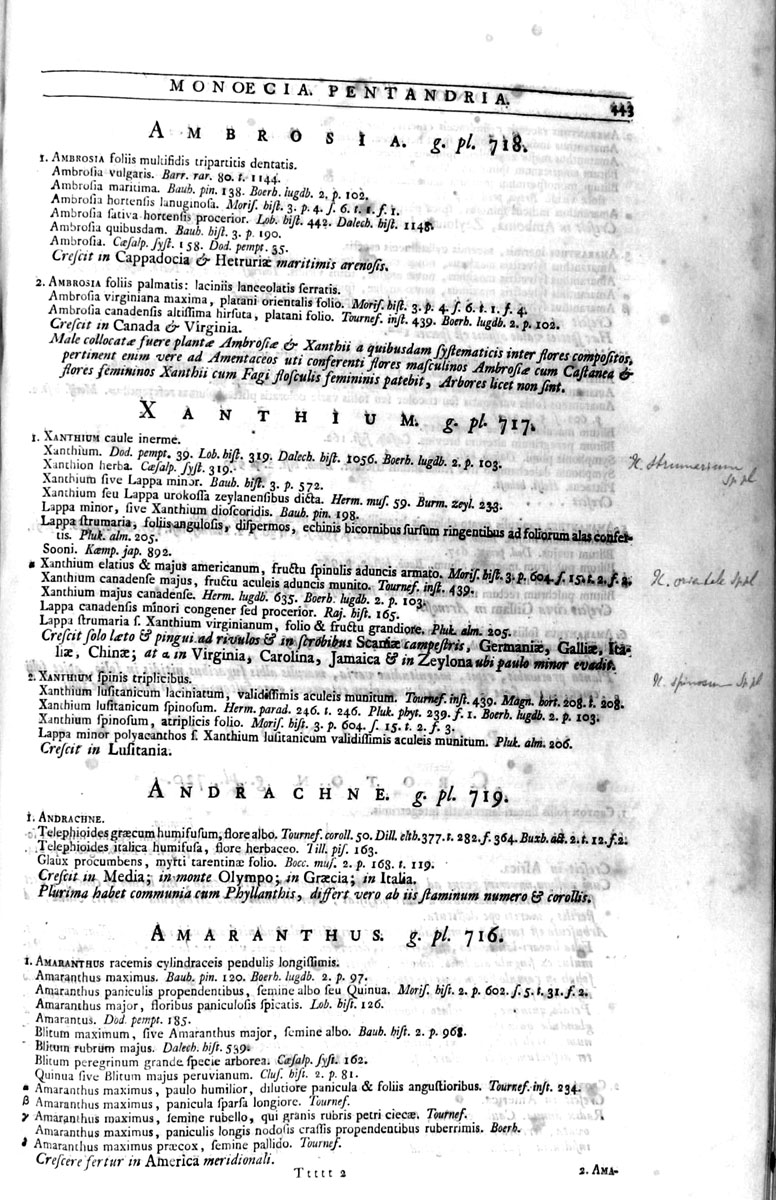 MONOECIA. PENTANDRIA. 443
AMBROSIA. g. pl. 718.
1. AMBROSIA foliis multifidis tripartitis dentatis.
Ambrosia vulgaris. Barr. rar. 80. t. 1144.
Ambrosia maritima. Bauh. pin. 138. Boerh. lugdb. 2. p. 102.
Ambrosia hortensis lanuginosa. Moris. hist. 3. p. 4. s. 6. t. 1. f. 1.
Ambrosia sativa hortensis procerior. Lob. hist. 442. Dalech. hist. 1148.
Ambrosia quibusdam. Bauh. hist. 3. p. 190.
Ambrosia. Cæsalp. syst. 158. Dod. pempt. 35.
Crescit in Cappadocia & Hetruriæ maritimis arenosis.
2. AMBROSIA foliis palmatis: laciniis lanceolatis serratis.
Ambrosia virginiana maxima, platani orientalis folio. Moris. hist. 3. p. 4. s. 6. t. 1. f. 4.
Ambrosia canadensis altissima hirsuta, platani folio. Tournef. inst. 439. Boerh. lugdb. 2. p. 102.
Crescit in Canada & Virginia.
Male collocatæ fuere plantæ Ambrosiæ & Xanthii a quibusdam systematicis inter flores compositos,
pertinent enim vere ad Amentaceos uti conferenti flores masculinos Ambrosiæ cum Castanea &
flores femininos Xanthii cum Fagi flosculis femininis patebit, Arbores licet non sint.
XANTHIUM. g. pl. 717.
1. XANTHIUM caule inerme.
Xanthium. Dod. pempt. 39. Lob. hist. 319. Dalech. hist. 1056. Boerh. lugdb. 2. p. 103.
Xanthion herba. Cæsalp. syst. 319.
X. strumarium
Sp pl
Xanthium sive Lappa minor. Bauh. hist. 3. p. 572.
Xanthium seu Lappa urokossa zeylanensibus dicta. Herm. mus. 59. Burm. zeyl. 233.
Lappa minor, sive Xanthium dioscoridis. Bauh. pin. 198.
Lappa strumaria, foliis angulosis, dispermos, echinis bicornibus sursum ringentibus ad foliorum alas confer-
tis. Pluk. alm. 205.
Sooni. Kæmp. jap. 892.
α Xanthium elatius & majus americanum, fructu spinulis aduncis armato. Moris. hist. 3. p. 604. s. 15. t. 2. f. 2.
X. orientale Sp pl
Xanthium canadense majus, fructu aculeis aduncis munito. Tournef. inst. 439.
Xanthium majus canadense. Herm. lugdb. 635. Boerh. lugdb. 2. p. 103.
Lappa canadensis minori congener sed procerior. Raj. hist. 165.
Lappa strumaria s. Xanthium virginianum, folio & fructu grandiore. Pluk. alm. 205.
Crescit solo læto & pingui ad rivulos & in scrobibus Scaniæ campestris, Germaniæ, Galliæ, Ita-
liæ, Chinæ; at α in Virginia, Carolina, Jamaica & in Zeylona ubi paulo minor evadit.
2. XANTHIUM spinis triplicibus.
X. spinosum Sp pl
Xanthium lusitanicum laciniatum, validissimis aculeis munitum. Tournef. inst. 439. Magn. hort. 208. t. 208.
Xanthium lusitanicum spinosum. Herm. parad. 246. t. 246. Pluk. phyt. 239. f. 1. Boerh. lugdb. 2. p. 103.
Xanthium spinosum, atriplicis folio. Moris. hist. 3. p. 604. s. 15. t. 2. f. 3.
Lappa minor polyacanthos s. Xanthium lusitanicum validissimis aculeis munitum. Pluk. alm. 206.
Crescit in Lusitania.
ANDRACHNE. g. pl. 719.
1. ANDRACHNE.
Telephioides græcum humifusum, flore albo. Tournef. coroll. 50. Dill. elth. 377. t. 282. f. 364. Buxb. act. 2. t. 12. f. 2.
Telephioides italica humifusa, flore herbaceo. Till. pis. 163.
Glaux procumbens, myrti tarentinæ folio. Bocc. mus. 2. p. 168. t. 119.
Crescit in Media; in monte Olympo; in Græcia; in Italia.
Plurima habet communia cum Phyllanthis, differt vero ab iis staminum numero & corollis.
AMARANTHUS. g. pl. 716.
1. AMARANTHUS racemis cylindraceis pendulis longissimis.
Amaranthus maximus. Bauh. pin. 120. Boerh. lugdb. 2. p. 97.
Amaranthus paniculis propendentibus, semine albo seu Quinua. Moris. hist. 2. p. 602. s. 5. t. 31. f. 2.
Amaranthus major, floribus paniculosis spicatis. Lob. hist. 126.
Amarantus. Dod. pempt. 185.
Blitum maximum, sive Amaranthus major, semine albo. Bauh. hist. 2. p. 968.
Blitum rubrum majus. Dalech. hist. 539.
Blitum peregrinum grande specie arborea. Cæsalp. syst. 162.
Quinua sive Blitum majus peruvianum. Clus. hist. 2. p. 81.
α Amaranthus maximus, paulo humilior, dilutiore panicula & foliis angustioribus. Tournef. inst. 234.
β Amaranthus maximus, panicula sparsa longiore. Tournef.
γ Amaranthus maximus, semine rubello, qui granis rubris petri ciecæ. Tournef.
Amaranthus maximus, paniculis longis nodosis crassis propendentibus ruberrimis. Boerh.
δ Amaranthus maximus præcox, semine pallido. Tournef.
Crescere fertur in America meridionali.
Ttttt 2 2. AMA-